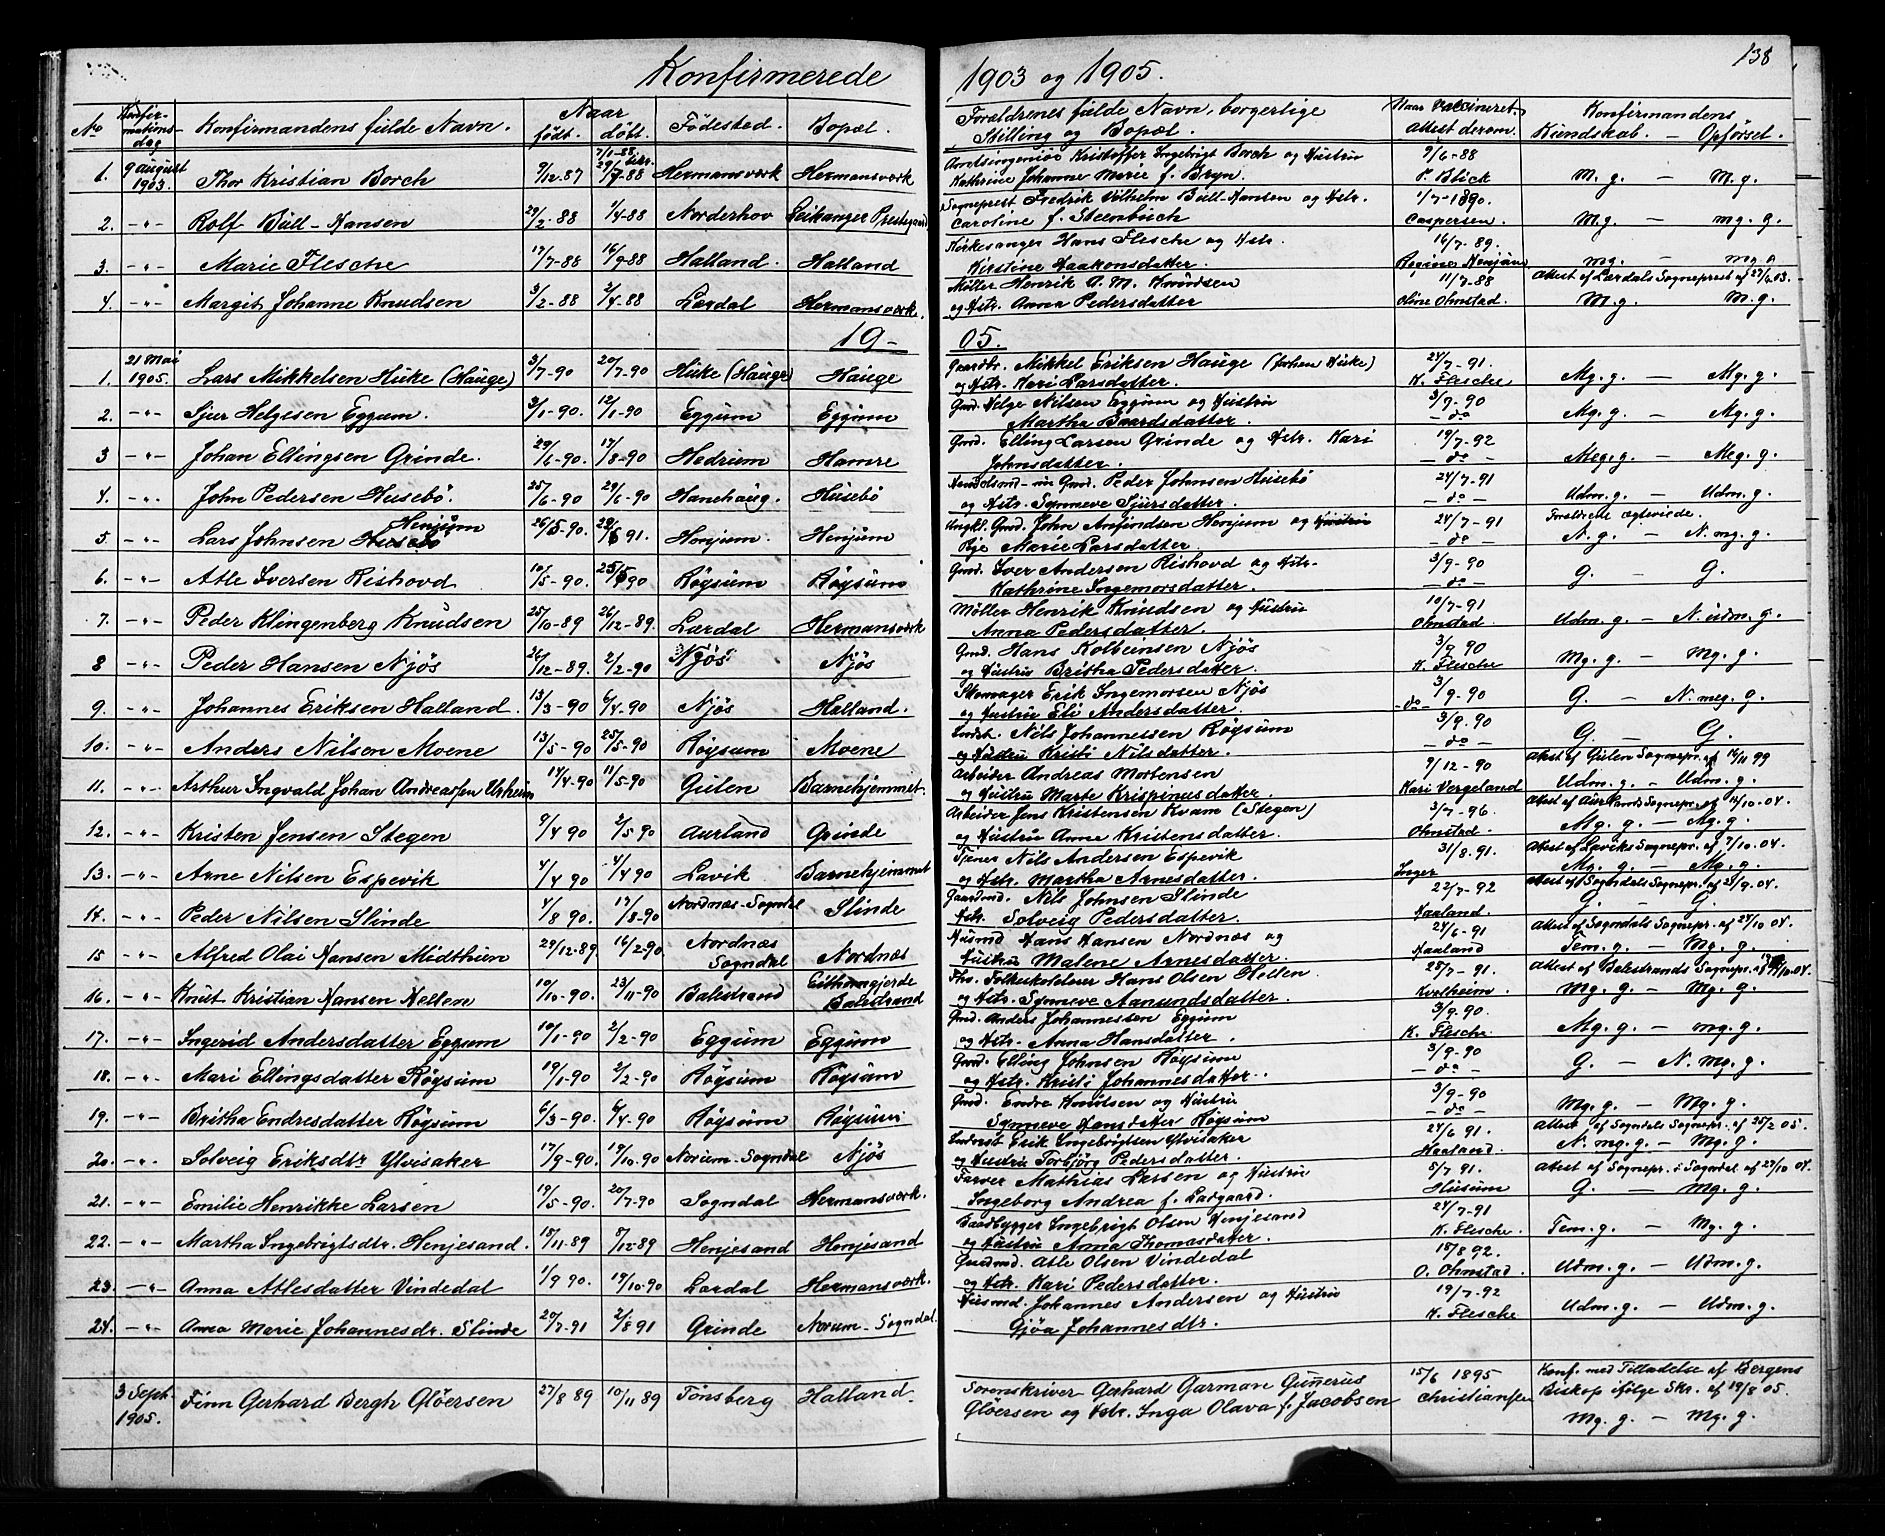 Konfirmerede 1903 og 1905. 138
No Konfir-mations-dag Konfirmandens fulde Navn. Naar født. døbt. Fødested. Bopæl. Forældrenes fulde Navn, borgerlige Stilling og Bopæl. Naar Vaccineret. Attest derom. Konfirmandens Kundskab. — Opførsel.
1. 9 August 1903. Thor Kristian Borch 9/12-87 Hermansværk Hermansværk Amtsingeniør Kristoffer Ingebrigt Borch og Hustru
Kathrine Johanne Marie f. Bryn. 9/6-88 P. Blick M. g. — M. g.
2. -"- Rolf Büll-Hansen 29/2-88 1/4-88 Norderhov Leikanger Prestegaard Sogneprest Fredrik Vilhelm Büll-Hansen og Hstr.
Caroline f. Steenbuch 1/7-1890. Caspersen. M.g. — mg. g.
3. -"- Marie Flesche 17/7-88 16/9-88 Halland. Halland Kirkesanger Hans Flesche og Hstr.
Kirstine Haakonsdatter. 16/7-89. mg. — mg.
4. -"- Margit Johanne Knudsen 3/2-88 2/4-88 Lærdal Hermansværk. Møller Henrik A. M. Knudsen
og Hstr. Anna Pedersdatter 11/7-88 Oline Ohnstad. Attest af Lærdals Sogneprest af 27/6 03. M.g. — M.g.
19-05.
1. 21 Mai 1905. Lars Mikkelsen Huke (Hauge) 3/7-90 20/7-90 Huke (Hauge) Hauge Gaardbr. Mikkel Eriksen Hauge (Huke)
og Hstr. Kari Larsdatter. 24/7-91. K. Flesche Mg. g. — Mg. g.
2. -"- Sjur Helgesen Eggum. 3/1-90. 12/1-90 Eggum Eggum Gmd. Helge Nilsen Eggum og Hustru
Martha Baardsdatter. 3/9-90 -do- Mg. g. — Mg. g.
3 -"- Johan Ellingsen Grinde. 29/6-90. 17/8-90 Hedrum Hamre Gmd. Elling Larsen Grinde og Hstr. Kari
Johnsdatter. 19/7-92 -do- Meg. g. — Meg. g.
4. -"- John Pedersen Husebø. 25/6-90 29/6-90 Hanehaug. Husebø Gmd. Peder Johnsen Husebø
og Hstr. Synneve Sjursdatter. 24/7-91 -do- Udm. g. — Udm. g.
5. -"- Lars Johnsen Husebø Henjum 26/5-90. Henjum. Henjum Ungkl. Gmd. John Arnfindsen Henjum og Hustru
Pige Marie Larsdatter. 24/7-91 -do- Forældrene ugteviede. N. g. — N. mg. g.
6. -"- Atle Iversen Rishovd 10/5-90. Røysum Røysum Gmd. Iver Andersen Rishovd og Hstr.
Kathrine Ingemorsdatter. 3/9-90 -do- G. — G.
7. -"- Peder Klingenberg Knudsen 25/10-89 26/12-89. Lærdal Hermansværk Møller Henrik Knudsen og Hustru
Anna Pedersdatter. 10/7-91 Ohnstad. Udm. g. — N. udm. g.
8 -"- Peder Hansen Njøs 26/12-89. 2/2-90 Njøs Njøs Gmd. Hans Kolbeinsen Njøs
og Hustru Britha Pedersdatter. 3/9 90 K. Flesche Mg. g. — Mg. g.
9. -"- Johannes Eriksen Halland. 13/3-90 6/4-90 Njøs Halland. Skomager Erik Ingemorsen Njøs
og Hustru Eli Andersdatter. 3/9-90 -do- G. — N. meg. g.
10. -"- Anders Nilsen Moene 13/5-90 25/5-90 Røysum Moene Indst. Nils Johannessen Røysum
og Hustru Kristi Nilsdatter. 3/9.90 -do- G. — G.
11. -"- Arthur Ingvald Johan Andreassen Urheim 14/4-90 11/5-90 Gulen Barnehjemmet. Arbeider Andreas Mortensen
og Hustru Marte Krispinusdatter. 9/12-90 Kari Vergeland Attest af Gulen Sognepr. af 16/11 99 Udm. g. — Udm. g.
12. -"- Kristen Jensen Stegen 9/4 90 2/5 90 Aurland Grinde Arbeider Jens Kristensen Kvam (Stegen)
og Hustru Anne Kristensdatter. 3/7-96. Ohnstad. Attest af Aurlands Sognepr. af 14/10-04. Mg. g. — Mg. g.
13. -"- Arne Nilsen Espevik 4/4 90 4/4 90 Lavik Barnehjemmet Tjener Nils Andersen Espevik
og Hstr. Martha Arnesdatter. 31/8.91. Inger Attest af Laviks Sognepr. af 7/10.04. Mg. g. — Mg. g.
14. -"- Peder Nilsen Slinde 4/8 90. 17/8-90 Nordnæs-Sogndal Slinde Gaardmd. Nils Johnsen Slinde
Hstr. Solveig Pedersdatter. 22/7-92 Haaland. Attest af Sogndals Sognepr. af 21/9.04. G. — G.
15 -"- Alfred Olai Hansen Midthun 29/12-89 16/2-90 Nordnæs Sogndal Nordnæs Husmd Hans Hansen Nordnæs og
Hustru Malene Arnesdatter. 24/6-91 Haaland Attest af Sogndals Sognepr. af 24/10 04. Tem. g. — Mg. g.
16. -"- Knut Kristian Hansen Hellen 10/10-90. 23/11-90 Balestrand Balestrand Fhv. Folkeskolelærer Hans Olsen Hellen
og Hstr. Synneve Aamundsdatter. 28/7-91. Kvelheim. Attest af Balestrands Sognepr. Mg. g. — Mg. g.
17. -"- Ingerid Andersdatter Eggum 10/1-90 2/2-90 Eggum Eggum Gmd. Anders Johannessen Eggum
og Hstr. Anna Hansdatter. 3/9.90. K. Flesche Mg. g. — mg. g.
18. -"- Mari Ellingsdatter Røysum 19/1-90 2/2-90 Røysum Røysum Gmd. Elling Johnsen Røysum
og Hstr. Kristi Johannesdatter. 3/9-90 -do- G. — N. mg. g.
19. -"- Britha Endresdatter Røysum 6/3-90. 6/4-90 Røysum Røysum Gmd. Endre Knutsen og Hustru
Synneve Hansdatter Røysum 3/9-90 -do- Mg. g. — Mg. g.
20. -"- Solveig Eriksdtr Ylvisaker 17/9-90. 19/10-90 Norum-Sogndal Njøs Inderst Erik Ingebrigtsen Ylvisaker
og Hustru Torbjørg Pedersdatter. 24/6 91. Haaland Attest af Sogndals Sognepr. af 25/2 05. N. mg. g. — Mg. g.
21. -"- Emilie Henrikke Larsen 19/5-90. 20/7-90 Sogndal Hermansværk. Farver Mathias Larsen og Hustru
Ingeborg Andrea f. Ladgaard. 5/7 91. Husum Attest af Sognepr. i Sogndal af 27/10 04. G. — Mg. g.
22. -"- Martha Ingebrigtsdtr. Henjesand. 15/11-89 8/12-89 Henjesand Henjesand Baadbygger Ingebrigt Olsen Henjesand
og Hustru Anna Thomasdatter. 24/7-91 K. Flesche. Tem. g. — Mg. g.
23. -"- Anna Atlesdatter Vindedal 1/9 90. 19/10-90 Lærdal Hermansværk. Atle Olsen Vindedal
og Hstr. Kari Pedersdatter. 18/8 92. O. Ohnstad. Udm. g. — Udm. g.
24. -"- Anna Marie Johannesdr. Slinde 20/7-91 2/8 91 Grinde Norum-Sogndal. Husmd. Johannes Andersen og Hustru
Gjøa Johannesdtr. 19/7-92 K. Flesche Udm. g. — Udm. g.
3 Sept. 1905. Finn Gerhard Bergh Gløersen 27/8 89 10/11 89 Tønsberg Halland. Sorenskriver Gerhard Garman Gunerus
Gløersen og Hstr. Inga Olava f. Jacobsen 15/6 1895 Christiansen Konf. med Tilladelse af Bergens
Biskop ifølge Skr. af 19/8 05.
Mg. g. — Mg. g.